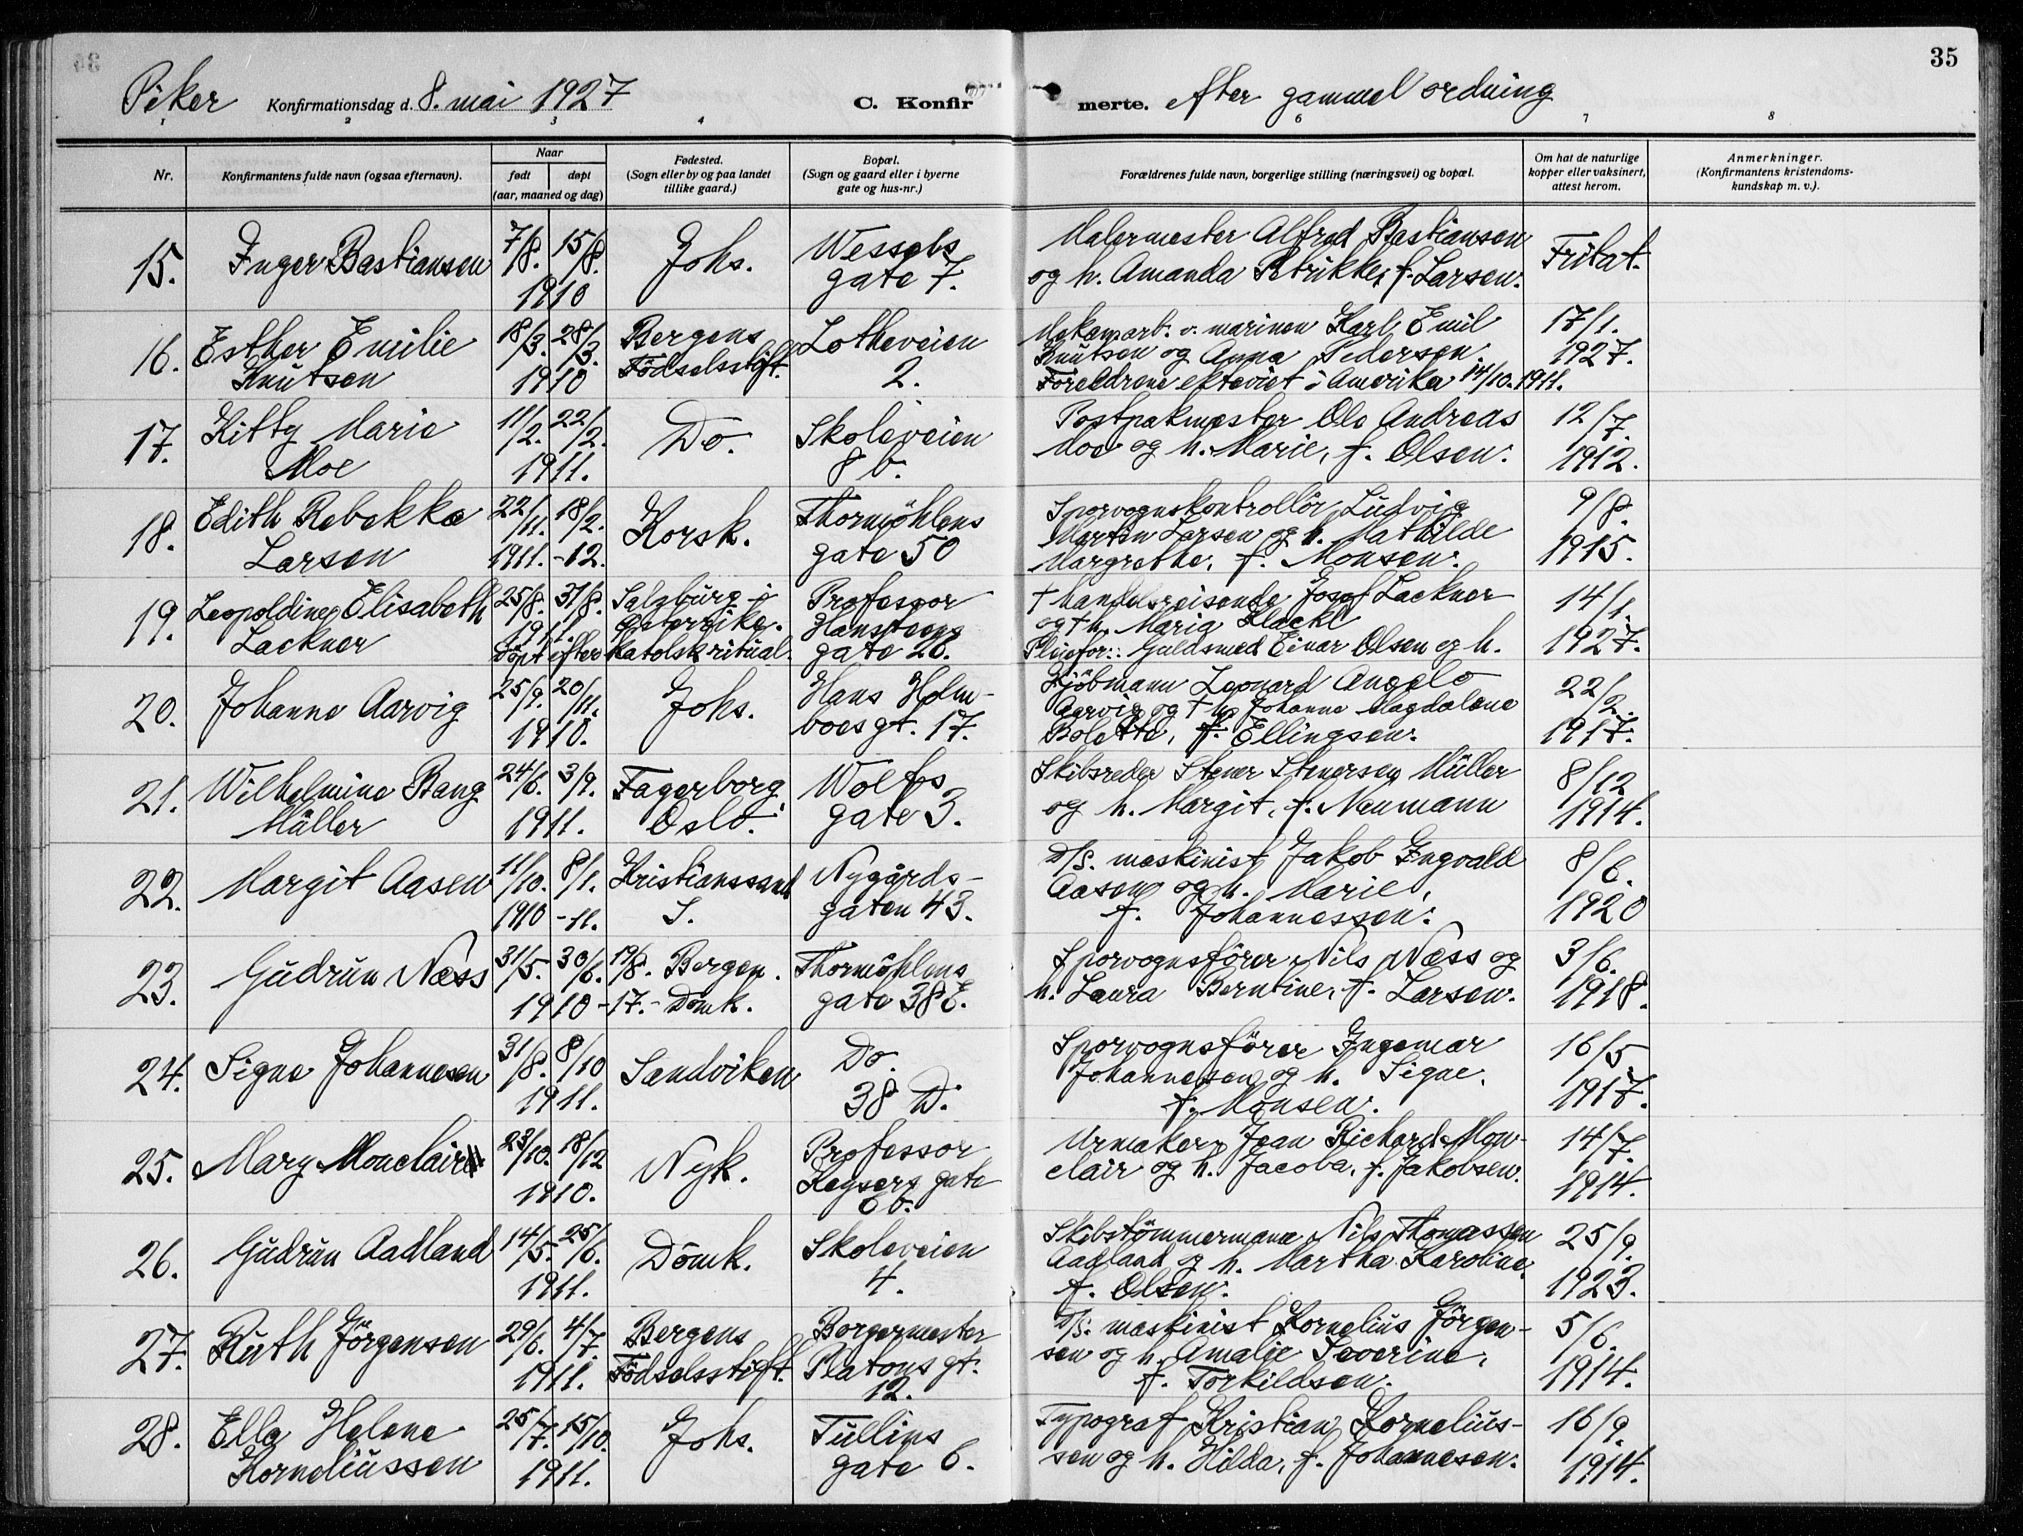 35
Piker Konfirmationsdag d. 8. mai 1927 C. Konfirmerte. efter gammel ordning
1 2 3 4 6 7 8
Nr. Konfirmantens fulde navn (ogsaa efternavn). Naar født døpt (aar, maaned og dag) Fødested. (Sogn eller by og paa landet tillike gaard.) Bopæl. (Sogn og gaard eller i byerne gate og hus-nr.) Forældrenes fulde navn, borgerlige stilling (næringsvei) og bopæl. Om hat de naturlige kopper eller vaksinert, attest herom. Anmerkninger. (Konfirmantens kristendomskundskap m. v.).
15. Inger Bastiansen 7/8. 15/8. 1910 Johs. Wessels gate 7. Malermester Alfred Bastiansen og h. Amanda Petrikke, f. Larsen. Fritat.
16. Esther Emilie Knutsen 18/3. 28/3. 1910 Bergens Födselsstift. Lotheveien 2. Mekan. arb. v. marinen Karl Emil Knutsen og Anna Pedersen. Foreldrene ekteviet i Amerika 14/10. 1911. 17/1. 1927.
17. Kitty Marie Moe 11/2. 22/2. 1911. Do. Skoleveien 8 b. Postpakmester Ole Andreas Moe og h. Marie, f. Olsen. 12/7. 1912.
18. Edith Rebekka Larsen 22/11. 18/2. 1911. -12. Korsk. Thormöhlens gate 50 Sporvognskontrollör Ludvig Martin Larsen og h. Mathilde Margrethe, f. Monsen. 9/8. 1915.
19. Leopoldine Elisabeth Lackner 25/8. 31/8. 1911. Döpt efter katolsk ritual. Salzburg i Österrike. Professor Hansteens gate 26. † handelsreisende Josef Lackner og † h. Maria Klackl Pleiefor.: Guldsmed Einar Olsen og h. 14/1. 1927.
20. Johanne Aarvig 25/9. 20/11. 1910. Johs. Hans Holmboes gt. 17. Kjöbmann Leonard Angelo Aarvig og † h. Johanne Magdalene Bolette, f. Ellingsen. 22/2. 1917.
21. Wilhelmine Bang Müller 24/6. 3/9. 1911. Fagerborg, Oslo. Wolffs gate 3. Skibsreder Stener Stenersen Müller og h. Margit, f. Neumann 8/12 1914.
22. Margit Aasen 11/10. 8/1. 1910 -11. Kristianssand S. Nygårdsgaten 43. D/S. maskinist Jakob Ingvald Aasen og h. Marie, f. Johannessen. 8/6. 1920
23. Gudrun Næss 31/5. 30/6. 1910 19/8. -17.- Bergen. Domk. Thormöhlens gate 38 E. Sporvognsförer Nils Næss og h. Laura Berntine, f. Larsen. 3/6. 1918.
24. Signe Johannesen 31/8. 8/10 1911. Sandviken Do. 38 D. Sporvognsförer Ingemar Johannesen og h. Signe, f. Monsen. 16/5. 1917.
25. Mary Monclair 23/10. 18/12 1910. Nyk. Professor Keysers gate 6 b. Urmaker Jean Richard Monclair og h. Jacoba, f. Jakobsen. 14/7. 1914.
26. Gudrun Aadland 14/5. 25/6. 1911. Domk. Skoleveien 4. Skibstömmermann Nils Thomassen Aadland og h. Martha Karoline, f. Olsen. 25/9. 1923.
27. Ruth Jörgensen 29/6. 4/7. 1911. Bergens Födselsstift. Borgermester Platous gt. 12. D/S. maskinist Kornelius Jörgensen og h. Amalie Severine, f. Torkildsen. 5/6. 1914.
28. Ella Helene Korneliussen 25/7. 15/10. 1911. Johs. Tullins gate 6. Typograf Kristian Korneliussen og h. Hilda, f. Johannesen. 16/9. 1914.